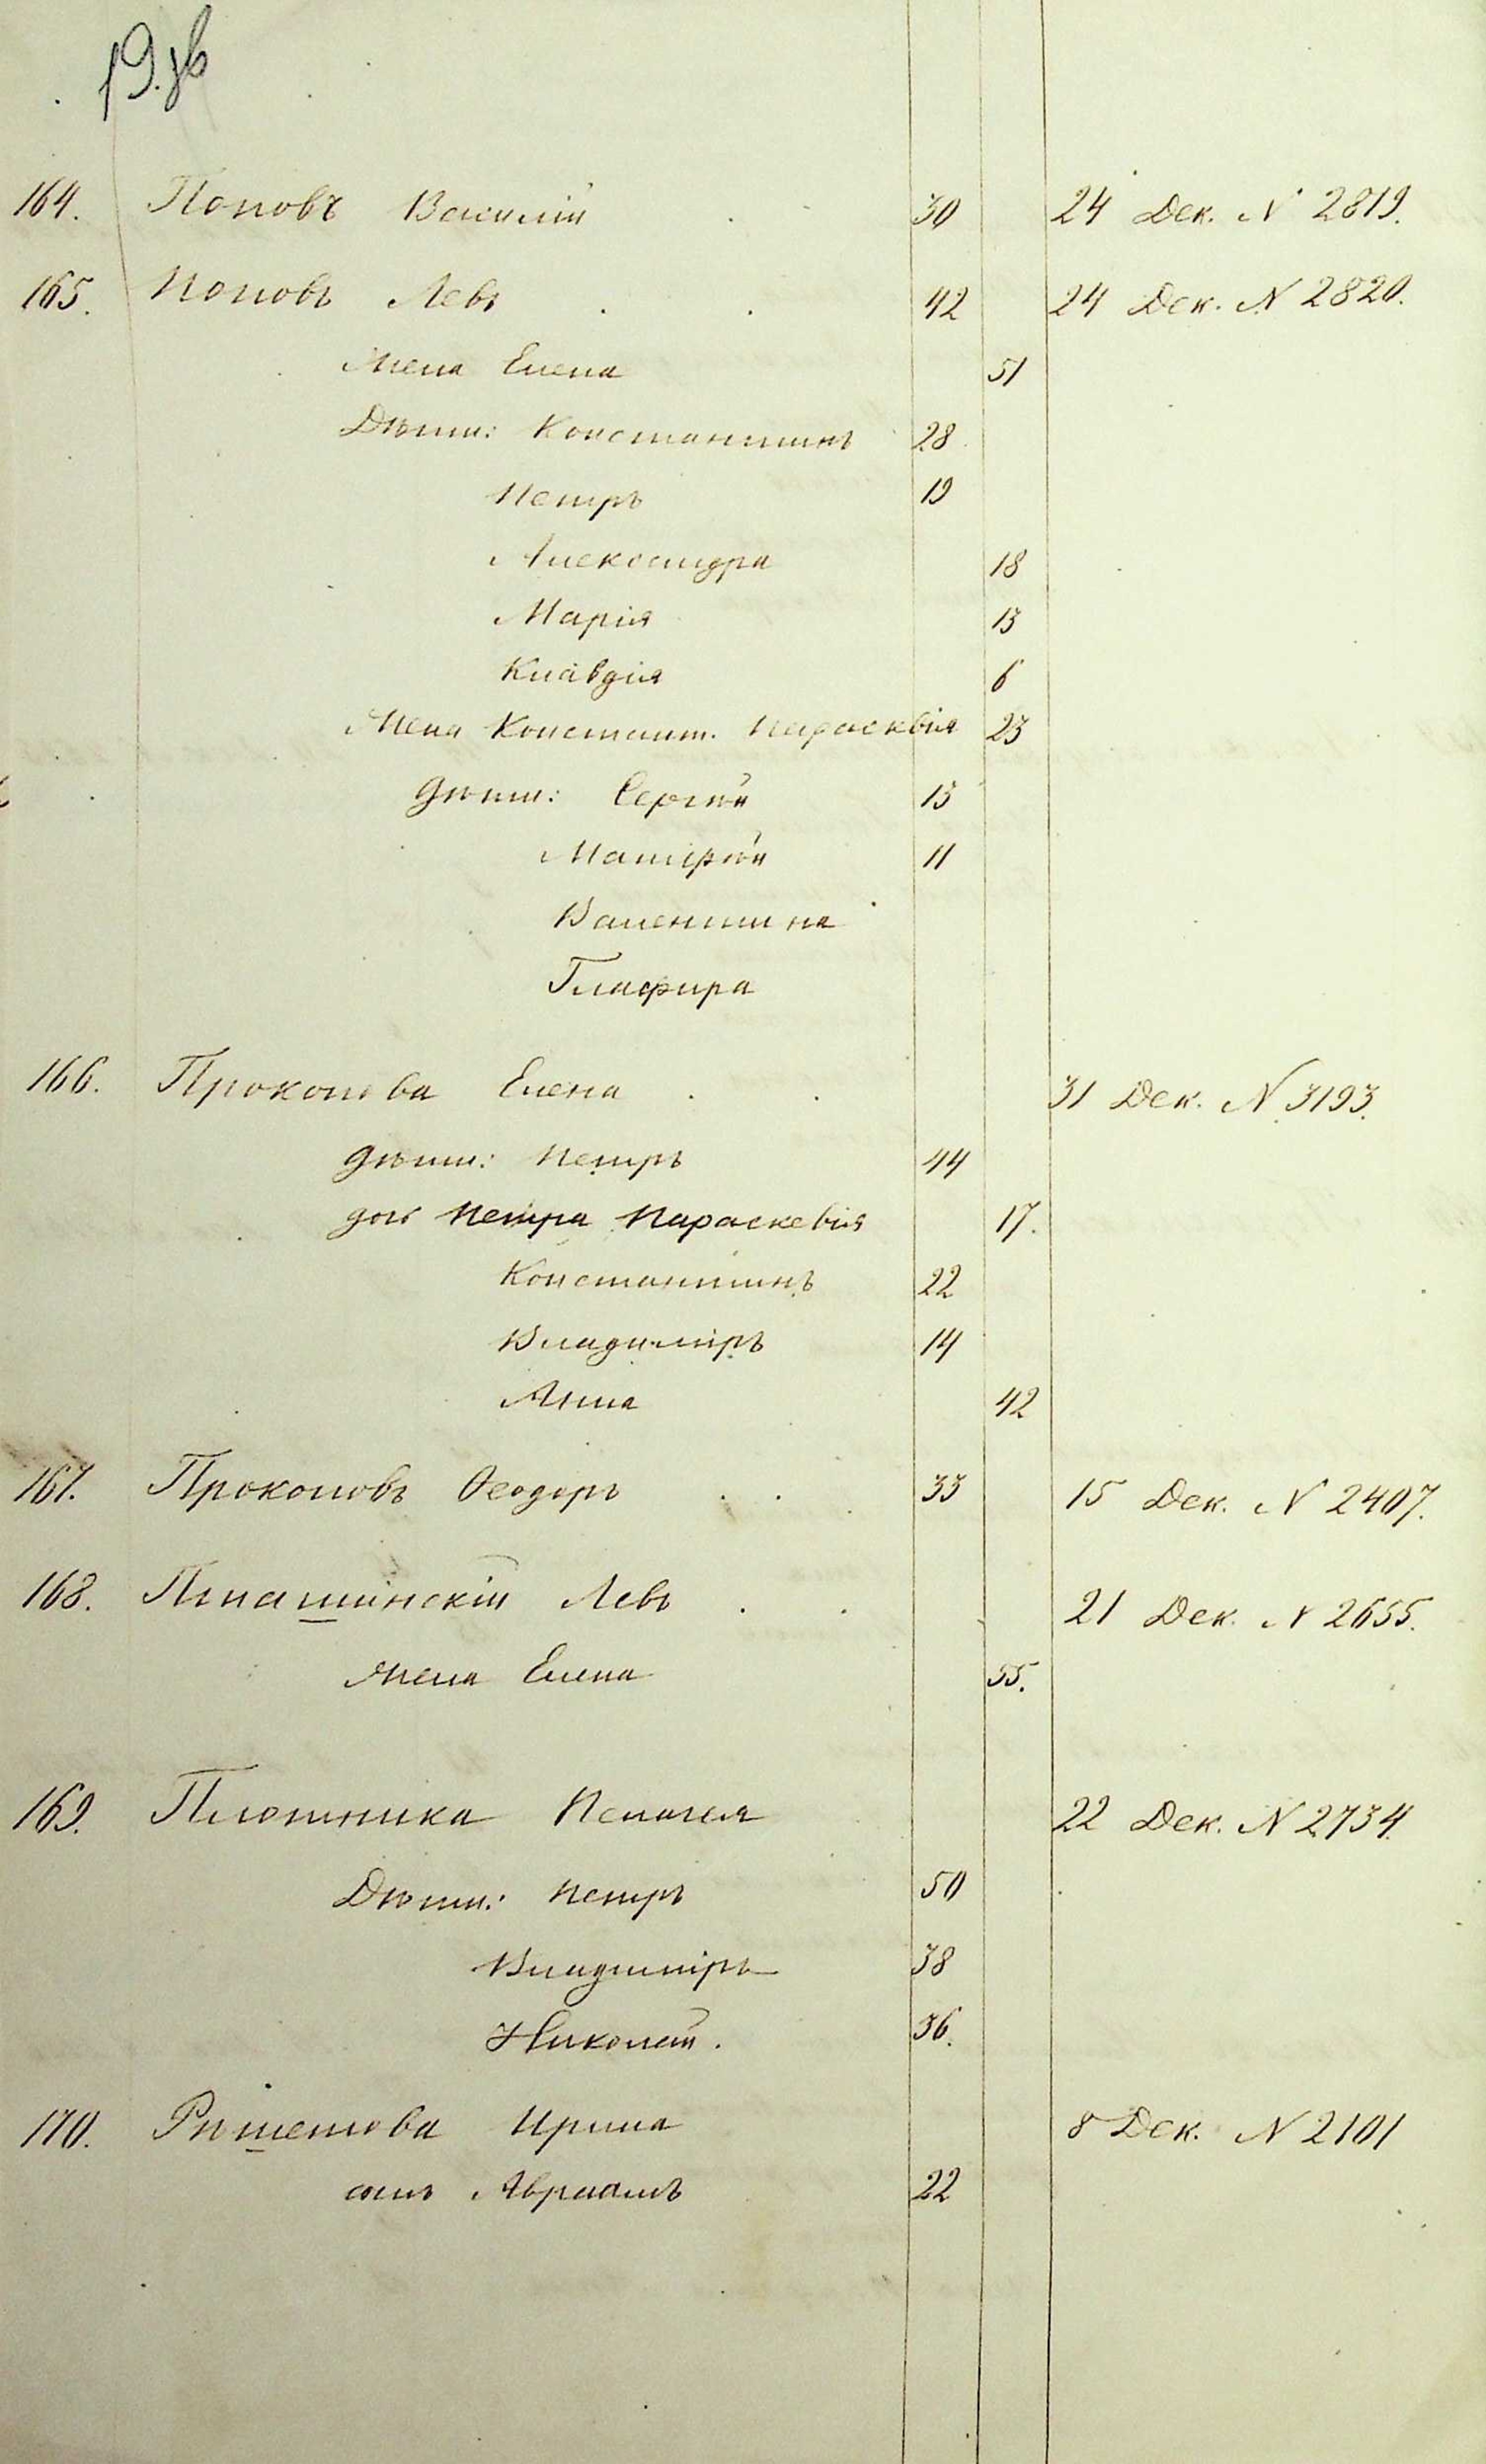 19.
164. Поповъ Василій . 30 24 Дек. N 2819.
165. Поповъ Левъ . . 42 24 Дек. N 2820.
Жена Елена 51
Дѣти: Константинъ 28
Петръ 19
Александра 18
Марія 13
Клавдія 6
Жена Констант. Парасквія 23
дѣти: Сергѣй 13
Матфѣй 11
Валентина
Глафира
166. Прокопова Елена . . 31 Дек. N 3193.
дѣти: Петръ 44
доч Петра Параскевія 17.
Константинъ 22
Владиміръ 14
Анна 42
167. Прокоповъ Ѳеодоръ . . . 33 15 Дек. N 2407.
168. Пташинскій Левъ . . 21 Дек. N 2655.
Жена Елена 55.
169. Плотника Пелагея 22 Дек. N 2734.
Дѣти: Петръ 50
Владиміръ 38
Николай. 36.
170. Рѣшетова Ирина 8 Дек. N 2101
сынъ Авраамъ 22